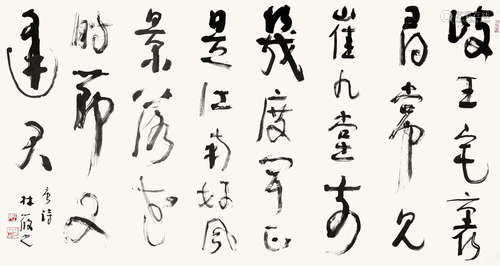 岐王宅裏
尋常見
崔九堂前
幾度聞正
是江南好風
景落花
時節又
逢君
唐詩
林筱之